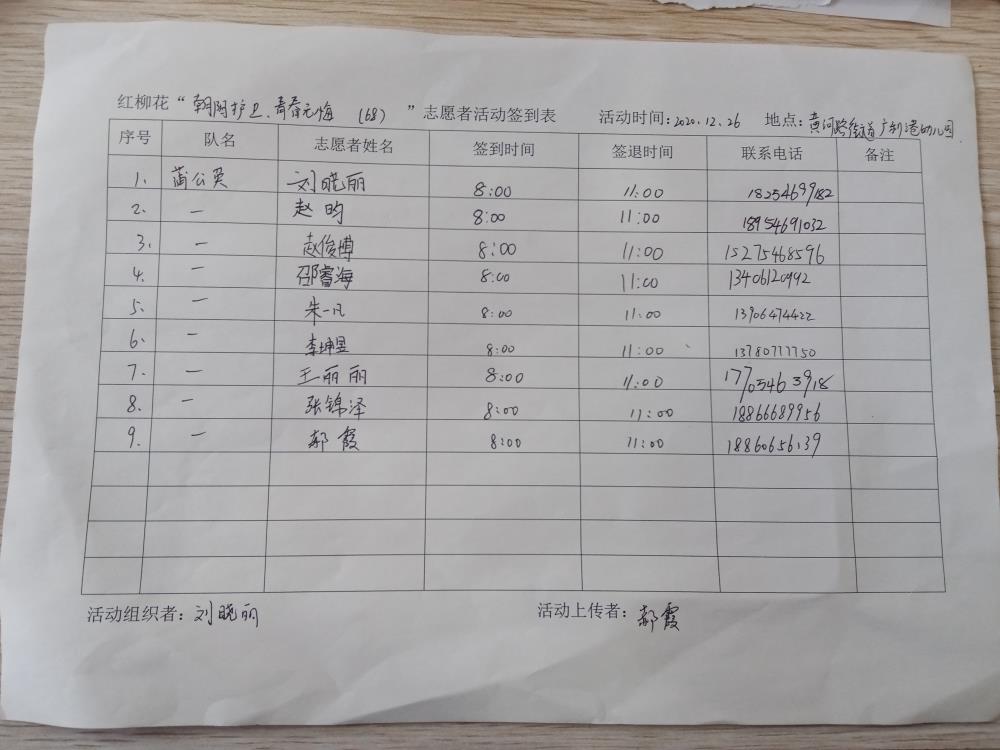 红柳花“朝阳护卫、青春无悔 (68) ”志愿者活动签到表 活动时间:2020.12.26 地点:黄河路街道广利港幼儿园
序号 队名 志愿者姓名 签到时间 签退时间 联系电话 备注
1. 蒲公英 刘晓丽 8:00 11:00 18254699182
2. 一 赵昀 8:00 11:00 18954691032
3. 一 赵俊博 8:00 11:00 15275468596
4. 一 邵睿海 8:00 11:00 13406120992
5. 一 朱一凡 8:00 11:00 13906474422
6. 一 李坤昱 8:00 11:00 13780777750
7. 一 王丽丽 8:00 11:00 17705463918
8. 一 张锦泽 8:00 11:00 18866689956
9. 一 郝霞 8:00 11:00 18860656139
活动组织者:刘晓丽 活动上传者:郝霞